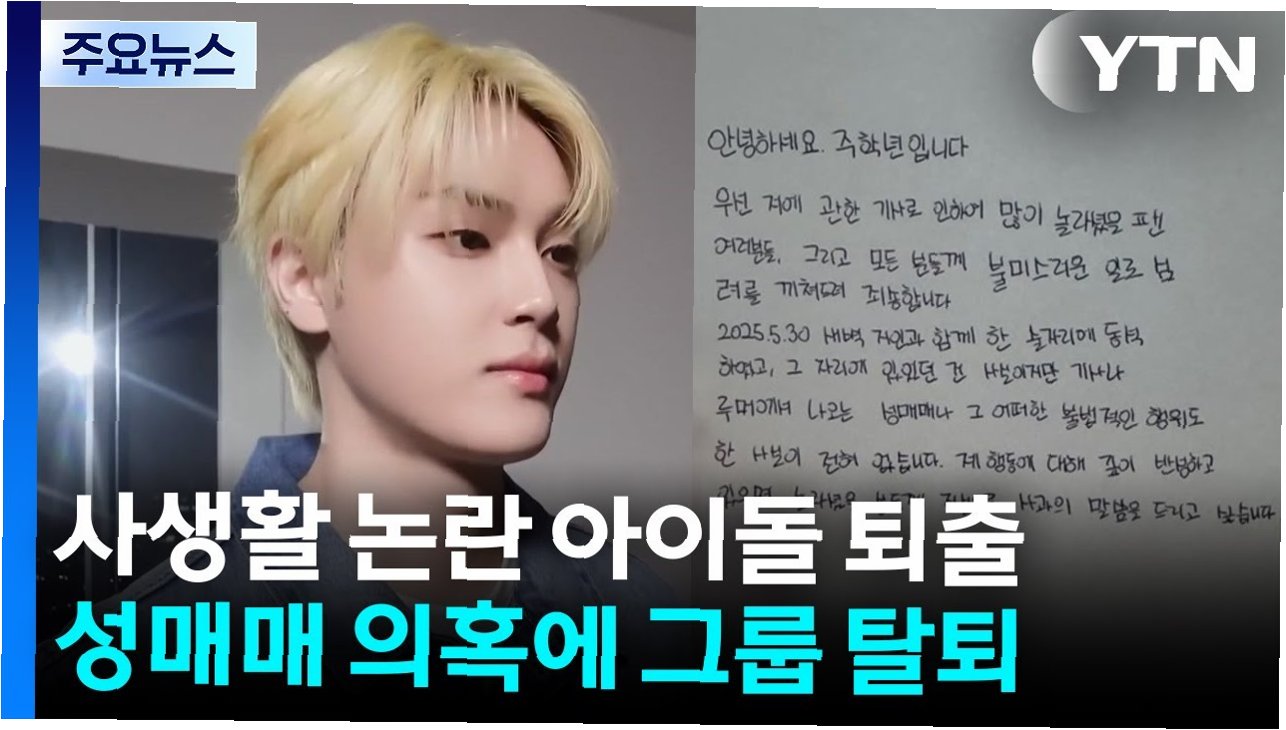 주요뉴스
YTN
안녕하세요. 주학년입니다
우선 저에 관한 기사로 인하여 많이 놀라셨을 팬
여러분들, 그리고 모든 분들께 불미스러운 일로 심
려를 끼쳐드려 죄송합니다
2025.5.30 새벽 지인과 함께 한 술자리에 동석
하였고, 그 자리에 있었던 건 사실이지만 기사나
루머에서 나오는 성매매나 그 어떠한 불법적인 행위도
한 사실이 전혀 없습니다. 제 행동에 대해 깊이 반성하고
사과의 말씀을 드리고 싶습니다
사생활 논란 아이돌 퇴출
성매매 의혹에 그룹 탈퇴